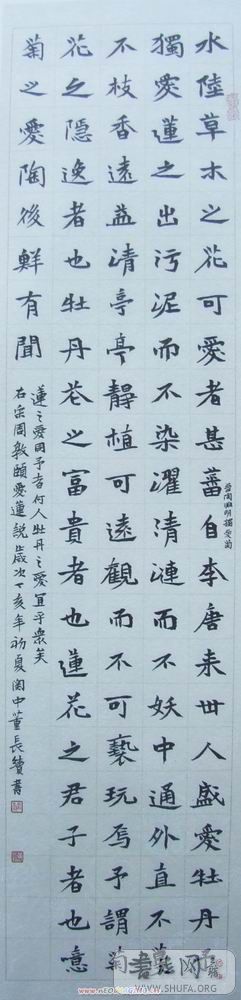 水陸草木之花可愛者甚蕃自李唐来世人盛愛牡丹予
晋陶渊明獨愛菊
獨愛蓮之出污泥而不染濯清漣而不妖中通外直不蔓
不枝香遠益清亭亭静植可遠觀而不可褻玩焉予謂菊
花之隱逸者也牡丹花之富貴者也蓮花之君子者也噫
菊之愛陶後鮮有聞
蓮之愛同予者何人牡丹之愛宜乎衆矣
右宋周敦頤愛蓮説歲次丁亥年初夏関中董長贊書
書法网
WWW.SHUFA.ORG